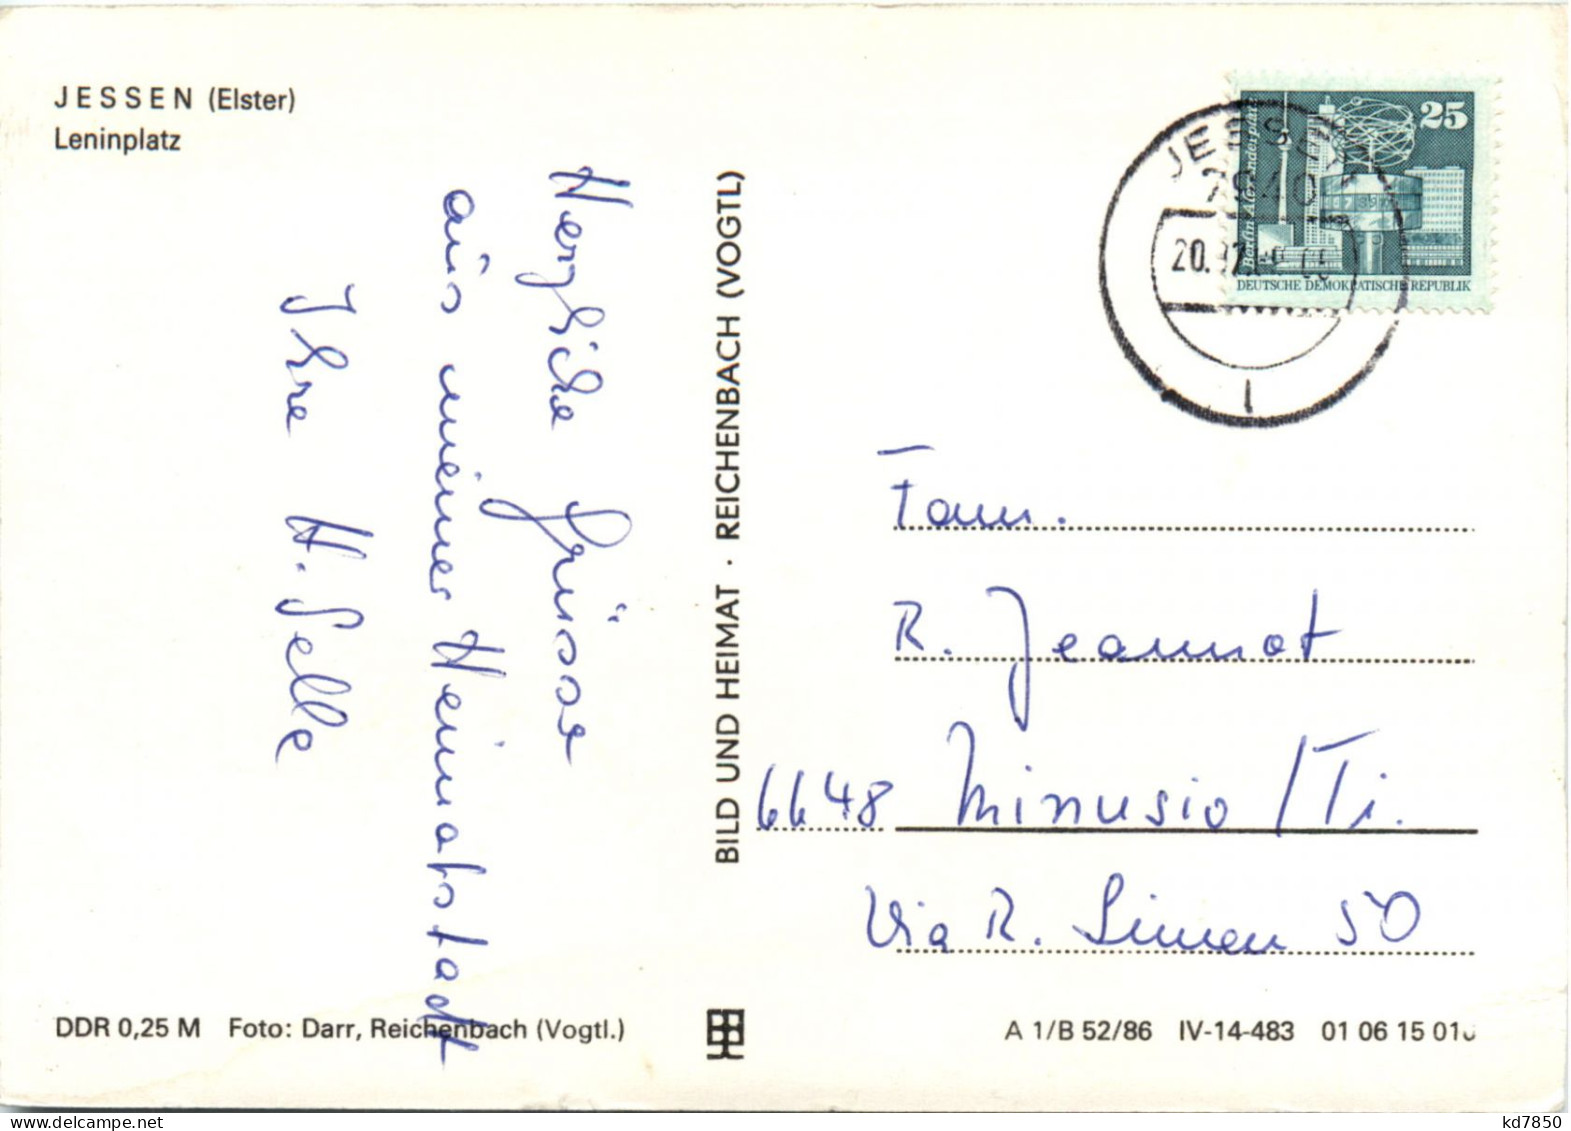 JESSEN (Elster)
Leninplatz
Herzliche Grüsse
aus meiner Heimatstadt
Ihre H. Selle
BILD UND HEIMAT · REICHENBACH (VOGTL)
25
Berlin, Alexanderplatz
DEUTSCHE DEMOKRATISCHE REPUBLIK
JESSEN
7940
20.
Fam.
R. Jeannot
6648 Minusio / Ti.
Via R. Simen 50
DDR 0,25 M Foto: Darr, Reichenbach (Vogtl.)
A 1/B 52/86 IV-14-483 01 06 15 01
kd7850